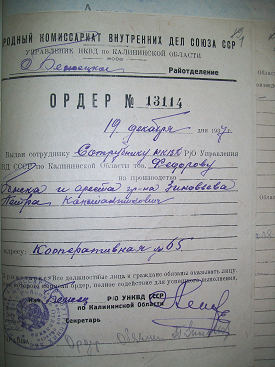 РОДНЫЙ КОМИССАРИАТ ВНУТРЕННИХ ДЕЛ СОЮЗА ССР
УПРАВЛЕНИЕ НКВД по КАЛИНИНСКОЙ ОБЛАСТИ
Бежецкое Райотделение
ОРДЕР № 13114
19 декабря дня 1937г.
Выдан сотруднику Сотруднику НКВД Р/О Управления
ВД СССР по Калининской Области тов. Федорову
на производство
обыска и ареста гр-на Зиновьева
Петра Константиновича
адресу: Кооперативная № 65
Все должностные лица и граждане обязаны оказывать лицу,
ордер, полное содействие для успешного выполнения.
Нач. Бежец Р/О УНКВД СССР
по Калининской Области
Секретарь
Ордер